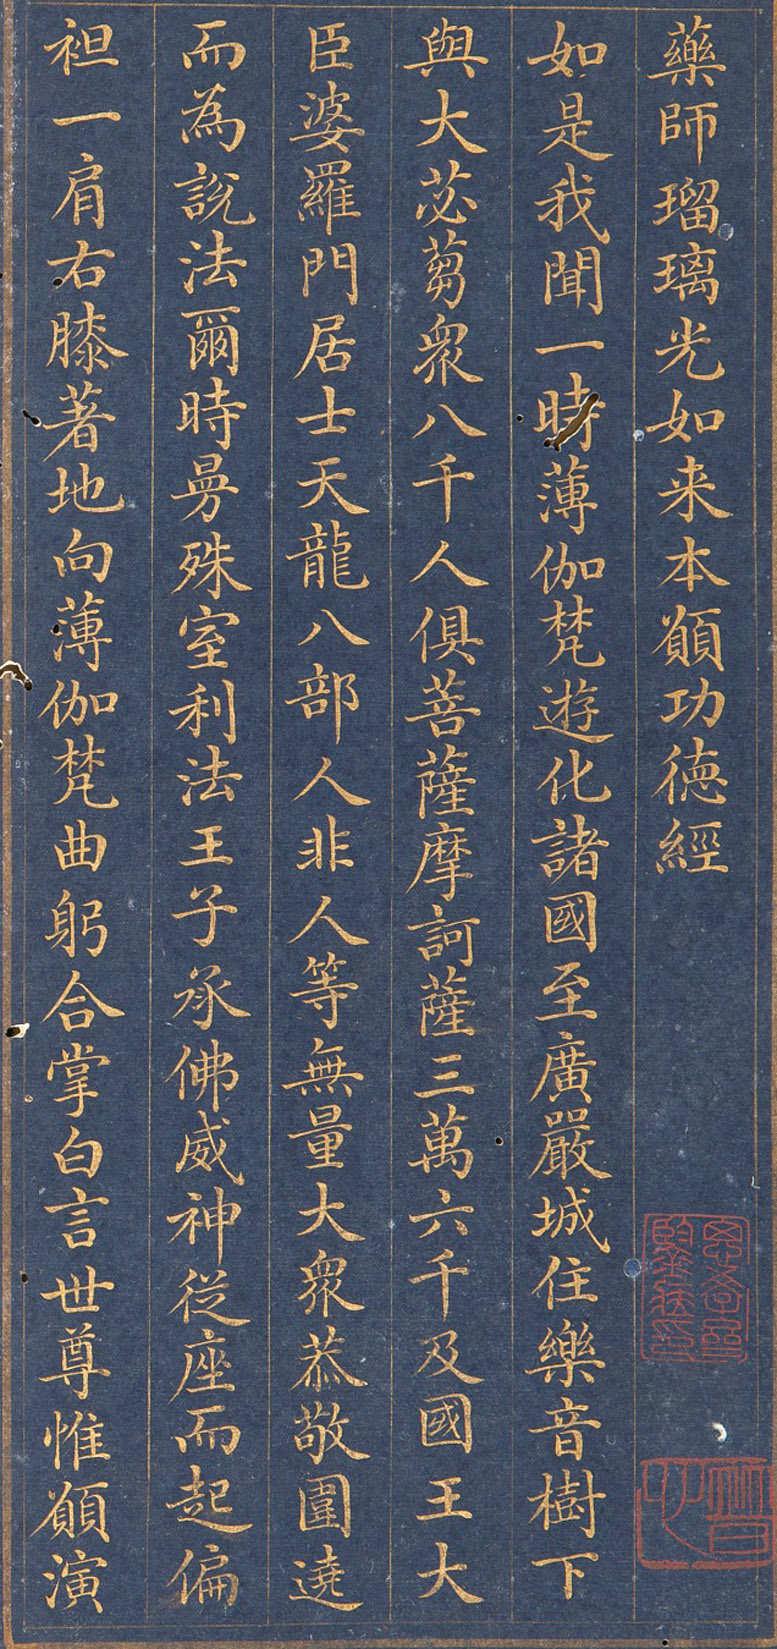 藥師瑠璃光如来本願功徳經
如是我聞一時薄伽梵遊化諸國至廣嚴城住樂音樹下
與大苾蒭衆八千人俱菩薩摩訶薩三萬六千及國王大
臣婆羅門居士天龍八部人非人等無量大衆恭敬圍遶
而為說法爾時曼殊室利法王子承佛威神從座而起偏
袒一肩右膝著地向薄伽梵曲躬合掌白言世尊惟願演